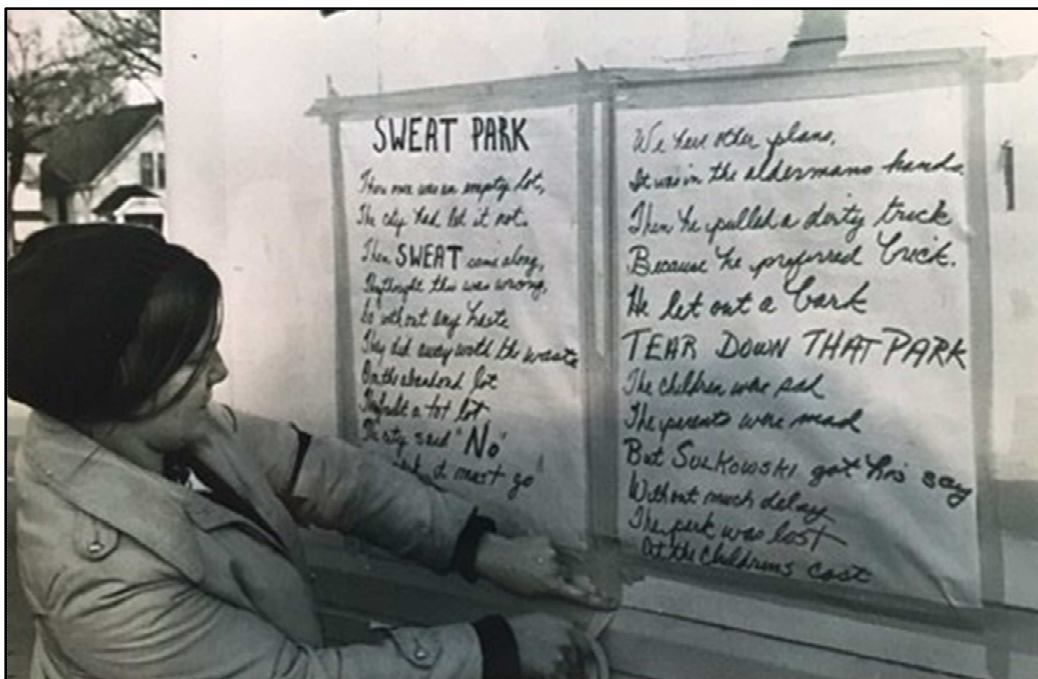 SWEAT PARK
There once was an empty lot,
The city had let it rot.
Then SWEAT came along,
They thought this was wrong,
So without any haste
They did away with the waste
On the abandond lot
They built a tot lot
The city said "No"
it must go
We have other plans,
It was in the aldermans hands.
Then he pulled a dirty trick
Because he preferred brick.
He let out a bark
TEAR DOWN THAT PARK
The children were sad
The parents were mad
But SULKOWSKI got his say
Without much delay
The park was lost
At the childrens cost